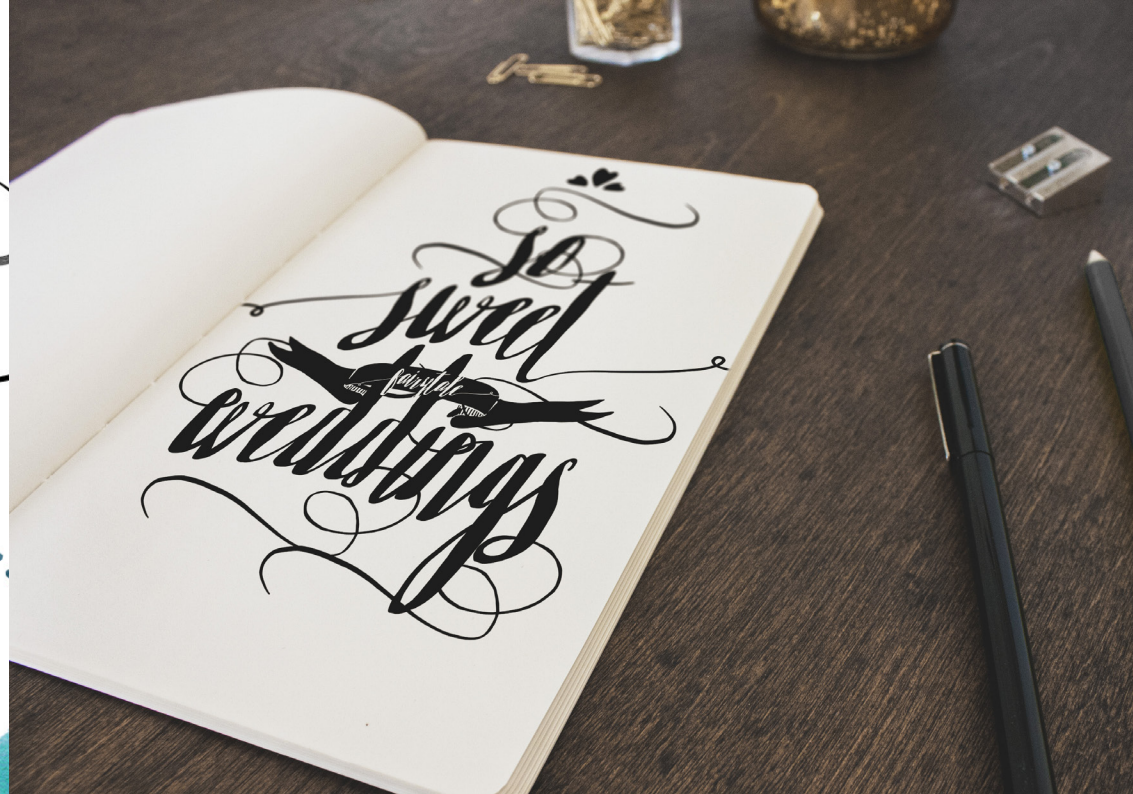 so
sweet
fairytale
weddings